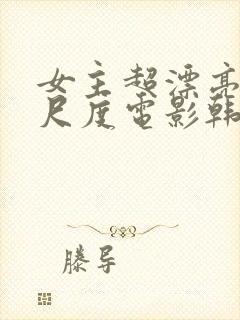 女主超漂亮
尺度电影韩
滕导